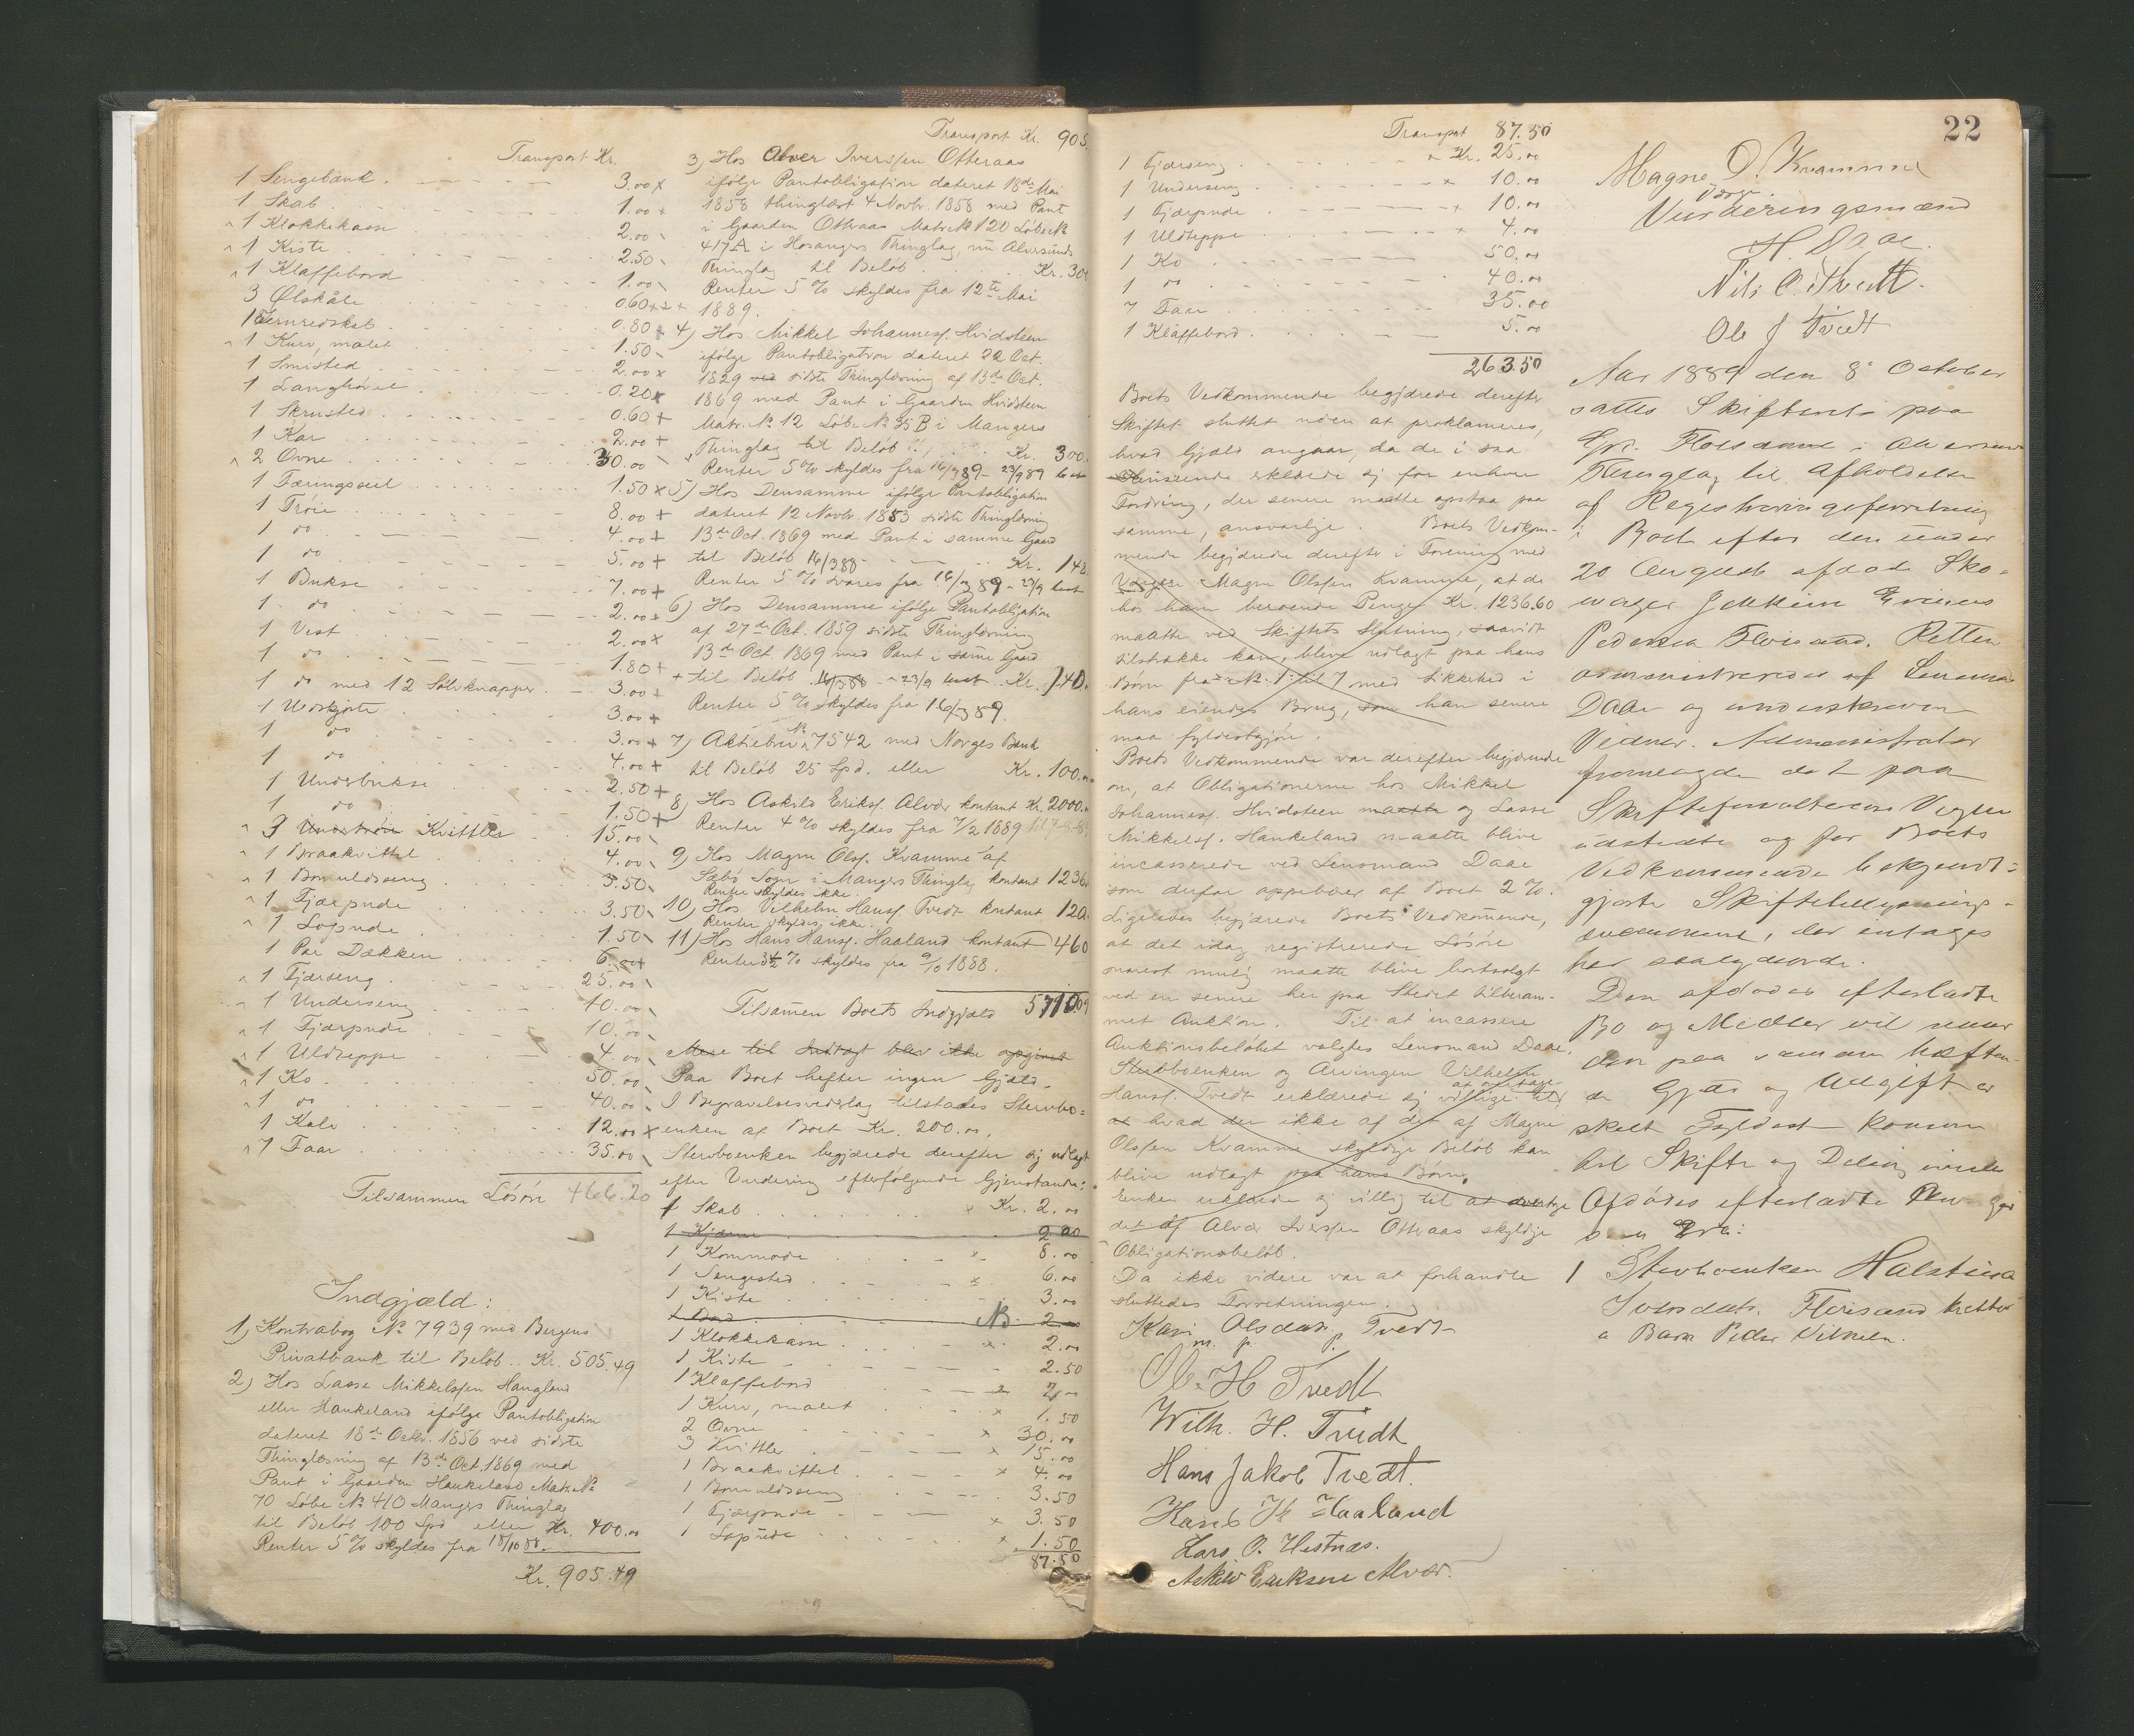 Transport Kr.
1 Sengebænk. 3.00 x
1 Skab 1.00 x
1 Klokkekasse 2.00
1 Kiste 2.50
1 Klaffebord 1.00
3 Ølskåle 060 xxx
1 Jernredskab 0.80 x
1 Kurv, malet 1.50
1 Smisted 2.00 x
1 Langhøvel 0.20 x
1 Skrusted 0.60 +
1 Kar 2.00 +
2 Ovne 30.00
1 Færingseil 1.50 x
1 Trøie 8.00 +
1 do 4.00 +
1 do 5.00 +
1 Bukse 7.00 +
1 do 2.00 x
1 Vest 2.00 x
1 do 1.80 +
1 do med 12 Sølvknapper 3.00 +
1 Uldskjorte 3.00 +
1 do 3.00 +
1 do 4.00 +
1 Underbukse 2.50 +
1 do 1.50 +
3 Kvittler 15.00
1 Braakvittel 4.00
1 Bomuldsseng 3.50
1 Fjærpude 3.50
1 Lopude 1.50
1 Par Dækken 6.00 +
1 Fjærseng 25.00
1 Underseng 10.00
1 Fjærpude 10.00
1 Uldteppe 4.00
1 Ko 50.00
1 do 40.00
1 Kalv 12.00 x
7 Faar 35.00
Tilsammen Løsøre 466.20
Indgjæld:
1) Kontrabog No 7939 med Bergens
Privatbank til Beløb .. Kr. 505.49
2) Hos Lasse Mikkelssen Haugland
eller Haukeland ifølge Pantobligation
dateret 18de Octbr. 1856 ved sidste
Thinglæsning af 13de Oct. 1869 med
Pant i Gaarden Haukeland Matr. No
70 Løbe No 410 Mangers Thinglag
til Beløb 100 Spd eller Kr. 400.00
Renter 5 % skyldes fra 18/10 88.
Kr. 905.49
Transport Kr. 905.
3) Hos Alver Iverssen Otteraas
ifølge Pantobligation dateret 18de Mai
1858 thinglæst 4 Novbr. 1858 med Pant
i Gaarden Otteraas Matr No 120 Løbe No
417A i Hosangers Thinglag, nu Alversunds
Thinglag til Beløb Kr. 30
Renter 5 % skyldes fra 12te Mai
1889.
4) Hos Mikkel Johanness. Hvidsteen
ifølge Pantobligation dateret 22 Oct.
1829 ved sidste Thinglæsning af 13de Oct.
1869 med Pant i Gaarden Hvidsteen
Matr. No 12 Løbe No 35B i Mangers
Thinglag til Beløb Kr. 300.
Renter 5 % skyldes fra 16/3 89 - 23/9 89
5) Hos Densamme ifølge Pantobligation
dateret 12 Novbr. 1853 sidste Thinglæsning
13de Oct. 1869 med Pant i samme Gaard
til Beløb 16/3 88 Kr. 148
Renter 5 % svares fra 16/3 89 - 23/9
6) Hos Densamme ifølge Pantobligation
af 27de Oct. 1859 sidste Thinglæsning
13de Oct. 1869 med Pant i samme Gaard
til Beløb 16/3 88 - 23/9 Kr. 140.
Renter 5 % skyldes fra 16/3 89.
7) Actiebrev No 7542 med Norges Bank
til Beløb 25 Spd. eller Kr. 100.
8) Hos Askild Erikss. Alvær kontant Kr. 2000.
Renter 4 % skyldes fra 7/2 1889
9) Hos Magne Olss. Kvamme af
Sæbø Sogn i Mangers Thinglag kontant 1236
Renter skyldes ikke.
10) Hos Vilhelm Hanss. Tvedt kontant 120.
Renter skyldes ikke.
11) Hos Hans Hanss. Haaland kontant 460
Renter 3½ % skyldes fra 9/10 1888.
Tilsammen Boets Indgjæld 5710.09
Mere til Indtægt blev ikke opgivet
Paa Boet hefter ingen Gjæld.
I Begravelsesvederlag tilstades Stervbo-
enken af Boet Kr. 200.00.
Stervboenken begjærede derefter sig udlagt
efter Vurdering efterfølgende Gjenstande:
1 Skab x Kr. 2.00
1 Kjærne 2.00
1 Kommode 8.00
1 Sengested x 6.00
1 Kiste 3.00
1 Bord 2
1 Klokkekasse x 2.00
1 Kiste 2.50
1 Klaffebord x 2.00
1 Kurv, malet x 1.50
2 Ovne x 30.00
3 Kvittler x 15.00
1 Braakvittel x 4.00
1 Bomuldsseng 3.50
1 Fjærpude x 3.50
1 Lopude x 1.50
87.50
22
Transport 87.50
1 Fjærseng x Kr. 25.00
1 Underseng x 10.00
1 Fjærpude x 10.00
1 Uldteppe x 4.00
1 Ko 50.00
1 do 40.00
7 Faar 35.00
1 Klaffebord 5.00
263.50
Boets Vedkommende begjærede derefter
Skiftet sluttet uden at proklameres,
hvad Gjæld angaar, da de i saa
Henseende erklærede sig for enhver
Fordring, der senere maatte opstaa paa
samme, ansvarlige. Boets Vedkom-
mende begjærede derefter i Forening med
Værgen Magne Olssen Kvamme, at de
hos ham beroende Penge Kr. 1236.60
maatte ved Skiftets Slutning, saavidt
tilstrække kan, blive udlagt paa hans
Børn fra No. 1 til 7 med Sikkerhed i
hans eiendes Brug, som han senere
maa fyldestgjøre.
Boets Vedkommende var derefter begjærende
om, at Obligationerne hos Mikkel
Johanness. Hvidsteen maatte og Lasse
Mikkelss. Haukeland maatte blive
incasserede ved Lensmand Daae
som derfor oppebærer af Boet 2 %.
Ligeledes begjærede Boets Vedkommende,
at det idag registrerede Løsøre
snarest mulig maatte blive bortsolgt
ved en senere her paa Stedet tilberam-
met Auktion. Til at incassere
Auktionsbeløbet valgtes Lensmand Daae.
Stervboenken og Arvingen Vilhelm
Hanss. Tvedt erklærede sig villige til at
at hvad der ikke af det af Magne
Olssen Kvamme skyldige Beløb kan
blive udlagt paa hans Børn.
Enken erklærede sig villig til at overtage
det af Alver Iverssen Otteraas skyldige
Obligationsbeløb.
Da ikke videre var at forhandle
sluttedes Forretningen.
Kari Olsdatr. Tvedt
m. p. p.
Ole H Tvedt
Wilh. H. Tvedt
Hans Jakob Tvedt
Hans H Haaland
Lars O. Hestnæs.
Askild Eriksen Alvær.
Magne O. Kvamme
Værge.
Vurderingsmænd
H Daae.
Nils O. Tvedt.
Ole J Tvedt
Aar 1889 den 8de October
sattes Skifteret paa
Gr. Floisand i Alversund
Thinglag til Afholdelse
af Registreringsforretning
i Boet efter den under
20 August afdøde Sko-
mager
Pedersen Floisand. Retten
administreredes af Lensmand
Daae og underskrevne
Vidner. Administrator
fremlagde det paa
Skifteforvalterens Vegne
udstedte og for Boets
Vedkommende bekjendt-
gjorte Skiftetillysnings-
document, der indtages
her saalydende.
Den afdødes efterladte
Bo og Midler vil under
den paa samme hæften-
de Gjæld og Udgifter
skelt Fyldest komme
til Skifte og Deling imellem
Afdødes efterladte
1 Stervboenken Halstina
Iversdatr. Floisand
a Barn Peder Vilhelm.